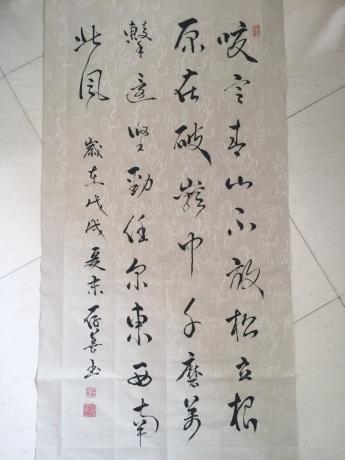 咬定青山不放松立根
原在破巖中千磨萬
擊還堅勁任尔東西南
北風
歲在戊戌夏末 喜书